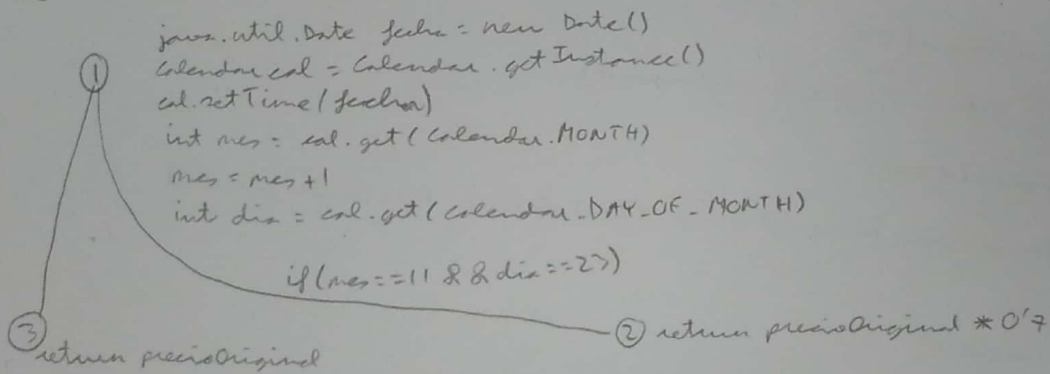 java.util.Date fecha = new Date()
Calendar cal = Calendar.getInstance()
1
cal.setTime(fecha)
int mes = cal.get(Calendar.MONTH)
mes = mes + 1
int dia = cal.get(Calendar.DAY_OF_MONTH)
if(mes==11 && dia==27)
2 return precioOriginal * 0'7
3
return precioOriginal